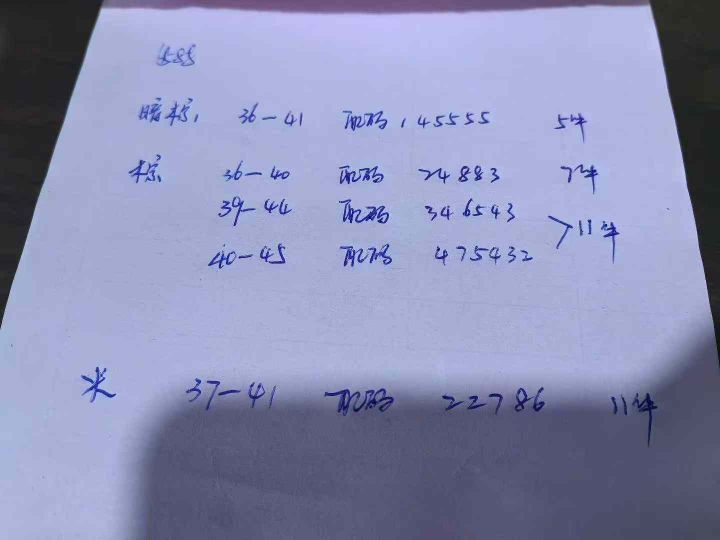 暗棕, 36-41 配码, 45555 5件
棕 36-40 配码 24883 7件
39-44 配码 346543
>11件
40-45 配码 475432
米 37-41 配码 22786 11件